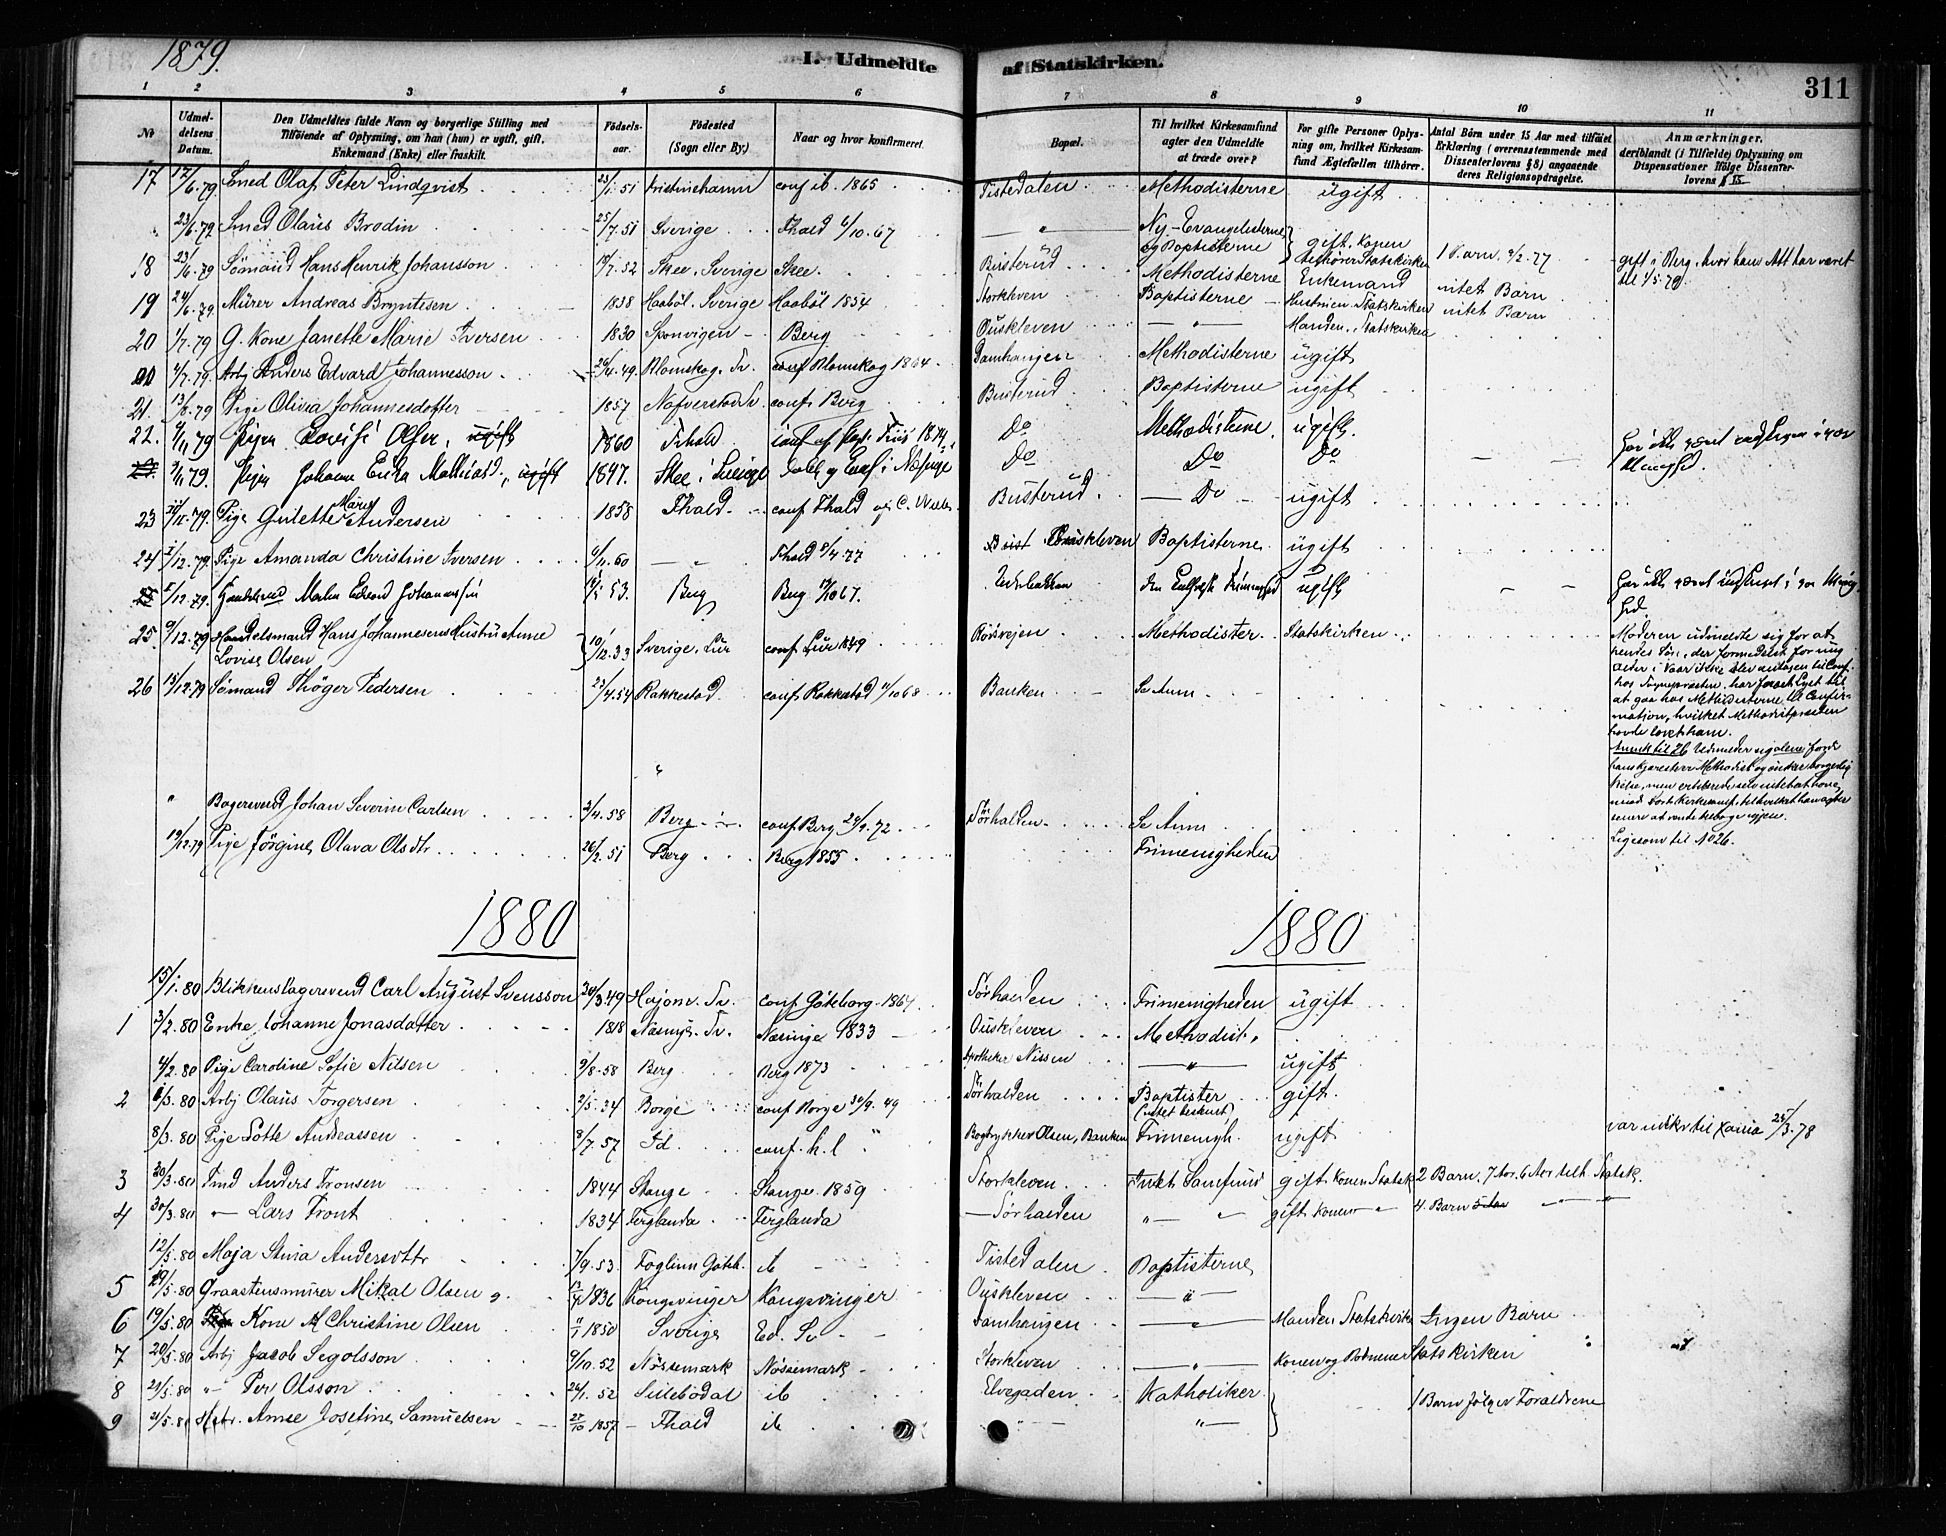 1879.
I. Udmeldte af Statskirken.
311
1 2 3 4 5 6 7 8 9 10 11
No
Udmeldelsens Datum.
Den Udmeldtes fulde Navn og borgerlige Stilling med Tilføiende af Oplysning, om han (hun) er ugift, gift, Enkemand (Enke) eller fraskilt.
Fødselsaar.
Fødested (Sogn eller By.)
Naar og hvor konfirmeret.
Bopæl.
Til hvilket Kirkesamfund agter den Udmeldte at træde over?
For gifte Personer Oplysning om, hvilket Kirkesamfund Ægtefællen tilhører.
Antal Børn under 15 Aar med tilføiet Erklæring (overensstemmende med Dissenterlovens § 8) angaaende deres Religionsopdragelse.
Anmærkninger, deriblandt (i Tilfælde) Oplysning om Dispensationer ifølge Dissenterlovens § 15
17 12/6.79 Smed Olaf Peter Lindqvist 23/1.51 Kristinehamn conf ib. 1865 Tistedalen Methodisterne ugift
23/6.79 Smed Olaus Brodin 25/7.51 Sverige Fhald 6/10.67 " Ny-Evangelisterne og Baptisterne
18 23/6.79 Sømand Hans Henrik Johansson /7.52 Skee, Sverige Skee. Busterud Methodisterne gift. Konen tilhører Statskirken 1 Barn, 2/2.77 gift i Berg, hvor hans Att har været til 1/5.79.
19 24/6.79 Murer Andreas Bryntesen 1838 Haabøl, Sverige Haabøl 1854 Storkleven Baptisterne Enkemand intet Barn
20 1/7.79 G. Kone Janette Marie Iversen 1830 Sponvigen Berg Ouskleven " Manden, Statskirken intet Barn
4/7.79. Arbj Anders Edvard Johannesson 26/4.49. Blomskog. Sv. conf Blomskog 1864 Damhaugen Methodisterne ugift
21. 13/8.79 Pige Olivia Johannesdotter 1857 Nafverstad Sv. conf. Berg Busterud Baptisterne ugift
22. 4/11 79 Pigen Lovise Olsen, ugift 1860 Frhald 1874. Do Methodisterne, ugift.
7/11 79. Pigen Johanne Erika Mathiasd., ugift 1847. Skee i Sverige Døbt og Conf i Næsinge Do Do Do Har ikke været indskreven i vor Menighed.
23 /11.79. Pige Gulette Marie Andersen 1858 Fhald conf Fhald Busterud. Do ugift
24 /12.79. Pige Amanda Christine Iversen 6/11.60 " Fhald 8/4.77 Ouskleven Baptisterne ugift
/12.79. Edvard Johannessen 53. Berg Berg 67. ugift Har ikke været
25. 9/12.79 Handelsmand Hans Johannesens Hustru Anne Lovise Olsen 19/12.33 Sverige, Lur conf. Lur 1849 Rødsvejen Methodister. Statskirken Moderen udmeldte sig for at hendes Søn, der formedelst for ung Alder i Vaar ikke blev antagen til Conf. hos Sognepræsten, har faaet Lyst til at gaa hos Methodisterne til Confirmation, hvilket Methodistpræsten havde lovet ham.
26 15/12.79 Sømand Thøger Pedersen 23/4.54 Rakkestad conf. Rakkestad 4/10 68 Banken Se Anm Anmk til 26 Udmelder sig alene fordi hans Kjæreste er Methodist og ønsker borgerlig Vielse, men erklærede selv intet at have imod Statskirken
" Bagersvend Johan Severin Carlsen 2/4.58 Berg conf. Berg 29/9.72 Sørhalden Se Anm Ligesom til No 26.
19/12.79 Pige Jørgine Olava Olsdtr 26/2.51 Berg Berg 1855 Frimenigheden
1880 1880
15/1.80 Blikkenslagersvend Carl August Svensson 30/3.49 Hajom. Sv. conf Göteborg. 1864 Sørhalden Frimenigheden ugift
1 3/2.80 Enke Johanne Jonasdatter 1818 Næsinge. Sv. Næsinge 1833 Ouskleven Methodist.
4/2.80 Pige Caroline Sofie Nilsen 9/8.58 Berg Berg 1873 Apotheker Nissen " ugift
2 6/3.80 Arbj Olaus Torgersen 2/5.34 Borge conf Borge 30/9.49 Sørhalden Baptister (intet besluttet) gift.
8/3.80 Pige Lotte Andreassen 8/7.57 Id conf. h. l Bogtrykker Olsen, Banken Frimenigh. ugift var indskr til Xania 25/3.78
3 20/3.80 Smd Anders Fronsen 1844 Stange Stange. 1859 Storkleven Intet Samfund gift Konen Statsk. 2 Barn. 7 Aar. 6 Aar tilh. Statsk.
4 30/3.80 " Lars Front 1834 Ferglanda Ferglanda Sørhalden " " gift Konen " 4. Barn " "
12/5.80 Maja Stina Andersdtr 7/9.53. Foglum Göteb. ib Tistedalen Baptisterne
5 29/5.80 Graastensmurer Mikal Olsen 1836 Kongsvinger Kongsvinger Ouskleven "
6 19/5.80 Kone M Christine Olsen 11/1 1850 Sverige Ed. Sv Damhaugen " Manden Statskirke Ingen Børn
7 20/5.80 Arbj Jacob Segolsson 9/10.52 Nössemark Nössemark Storkleven " Konen og Børnene Statskirken
8 21/5.80 " Per Olsson 24/1.52 Sillebodal ib Elvegaden Katholiker 1 Barn følger Forældrene
9 21/5.80 Hstr. Anne Josefine Samuelsen 27/10 1857 Fhald ib " "